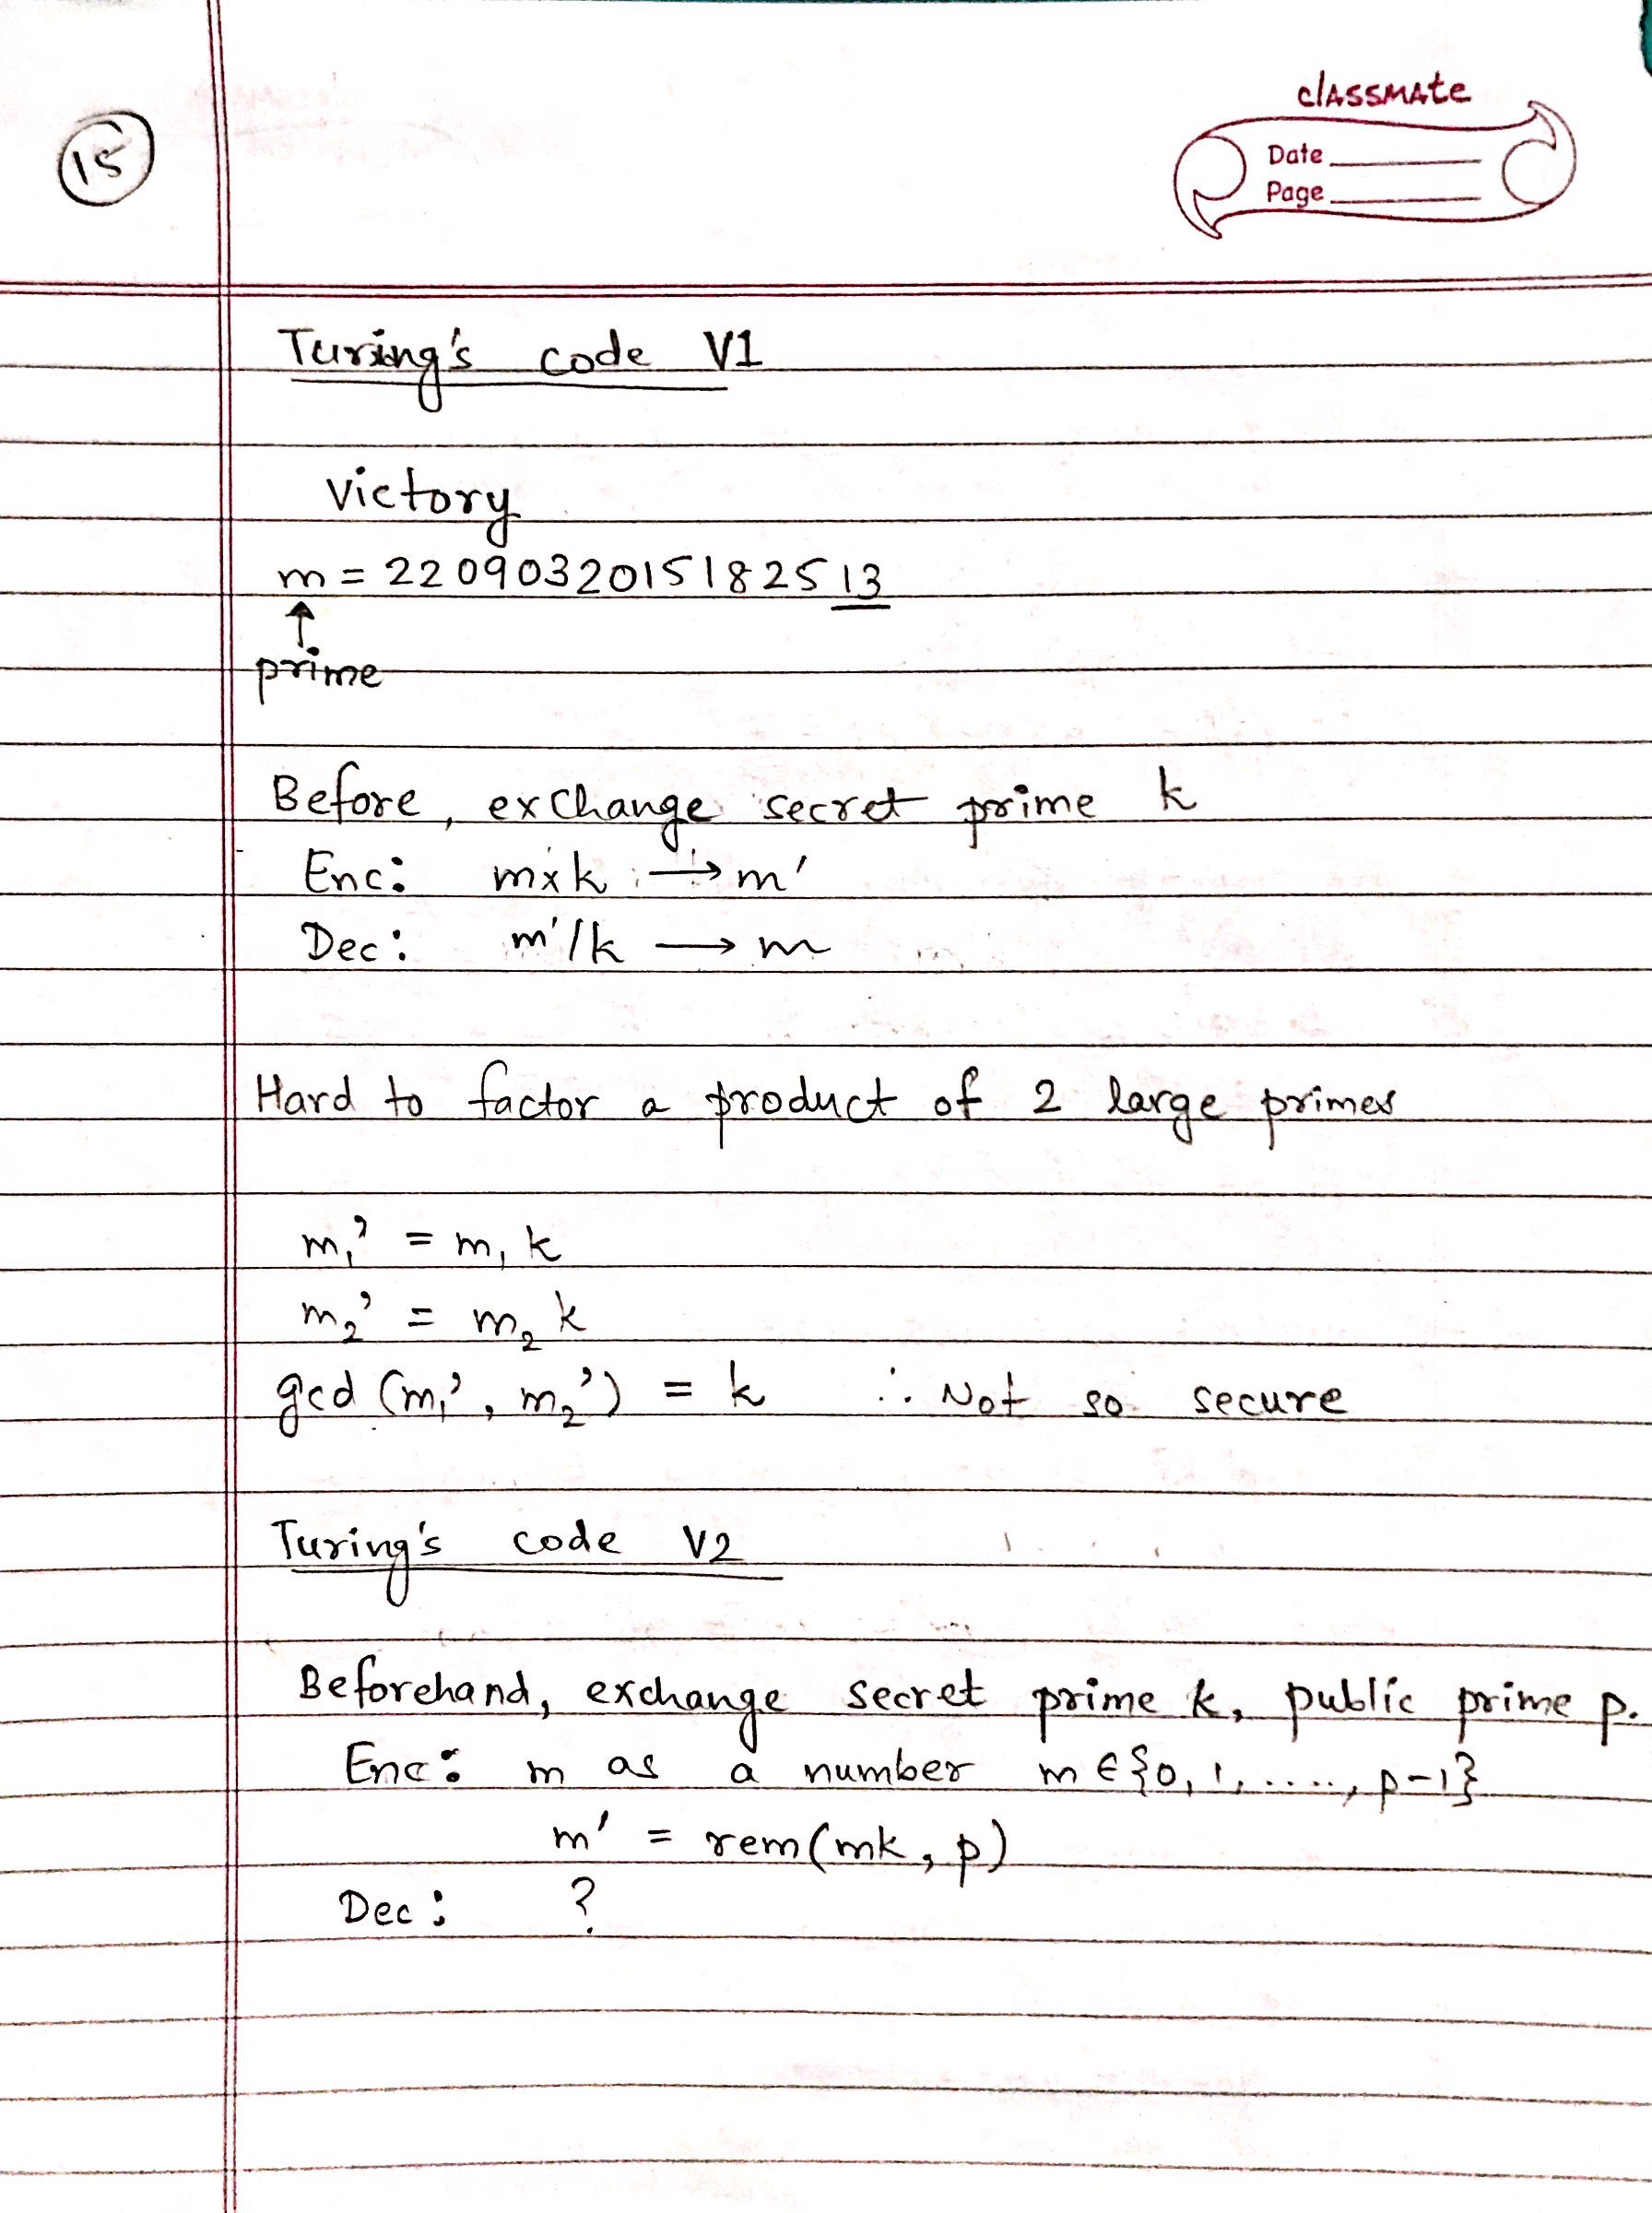 15
classmate
Date
Page
Turing's code V1
victory
m = 2209032015182513
↑
prime
Before, exchange secret prime k
Enc: m×k → m'
Dec: m'/k → m
Hard to factor a product of 2 large primes
m₁' = m₁ k
m₂' = m₂ k
gcd (m₁', m₂') = k ∴ Not so secure
Turing's code V2
Beforehand, exchange secret prime k, public prime p.
Enc: m as a number m ∈ {0, 1, ....., p-1}
m' = rem(mk, p)
Dec: ?